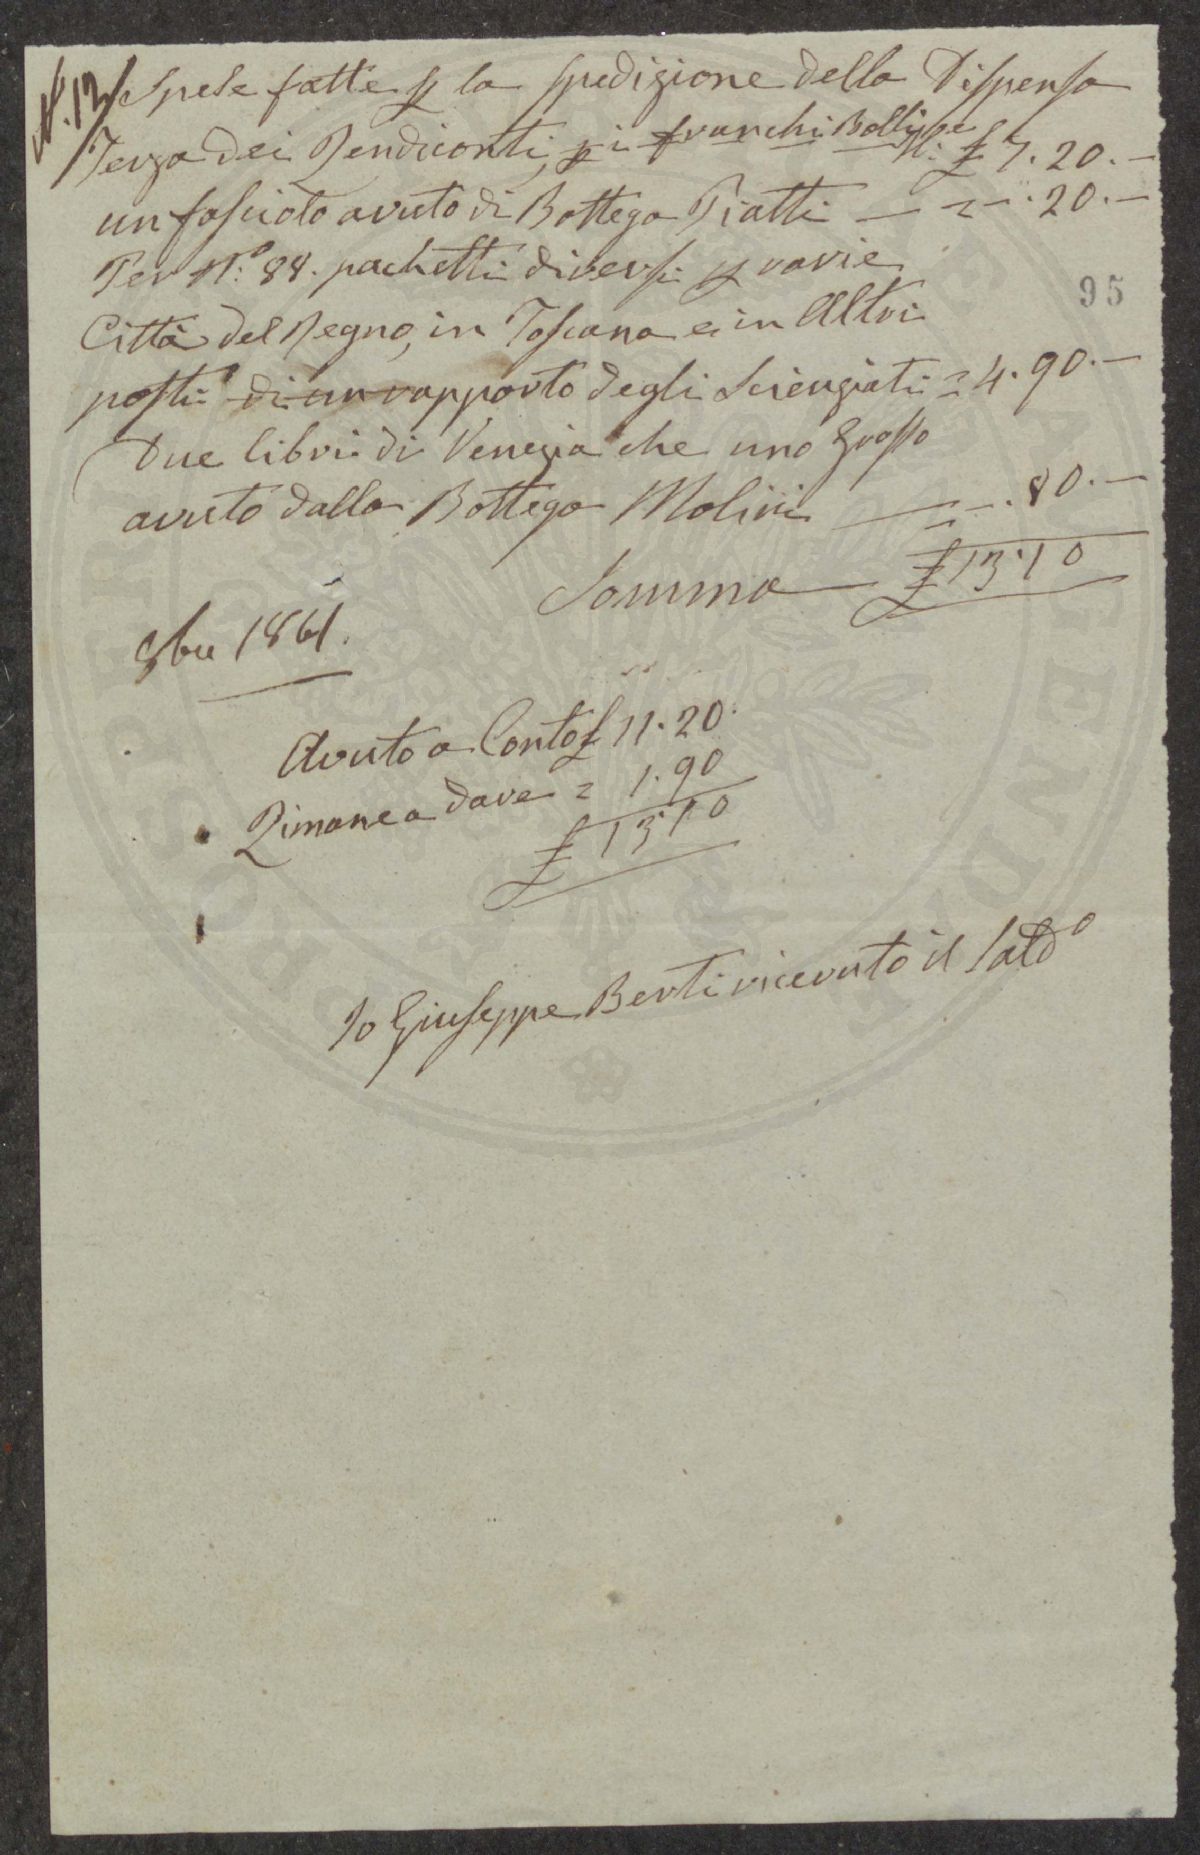 N. 13
Spese fatte p la spedizione della Dispensa
Terza dei Rendiconti, p i franchi Bolli £ 7.20.—
un fascioto avuto di Bottega Piatti — = —.20.—
Per N.° 88. pachetti diversi p varie
Città del Regno, in Toscana e in Altri
95
posti di un rapporto degli Scienziati = 4.90.—
Due libri di Venezia che uno Grosso
avuto dalla Bottega Molini — = —.80.—
Somma — £ 13.10
8bre 1861.
Avuto a Conto £ 11.20.
Rimane a dare = 1.90
£ 13.10
Io Giuseppe Berti ricevuto il Saldo